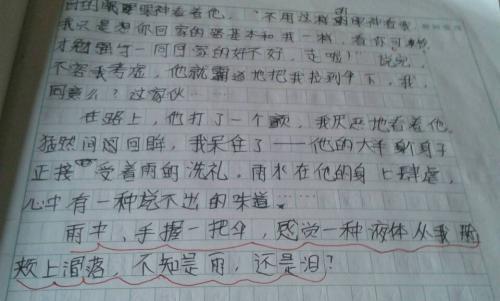 眼神看着他,“不用这样的眼神看我
我只是想你回家的路基本和我一样,看你可怜
才勉强与一同回家的好不好,走啦!”说完,
不容我考虑,他就霸道地把我拉到伞下,我,
同意么?这家伙……
在路上,他打了一个颤,我厌恶地看着他,
猛然间回眸,我呆住了——他的大半身子
正接受着雨的洗礼,雨水在他的身上肆虐,
心中有一种说不出的味道……
雨中、手握一把伞,感觉一种液体从我的
颊上滑落,不知是雨,还是泪?